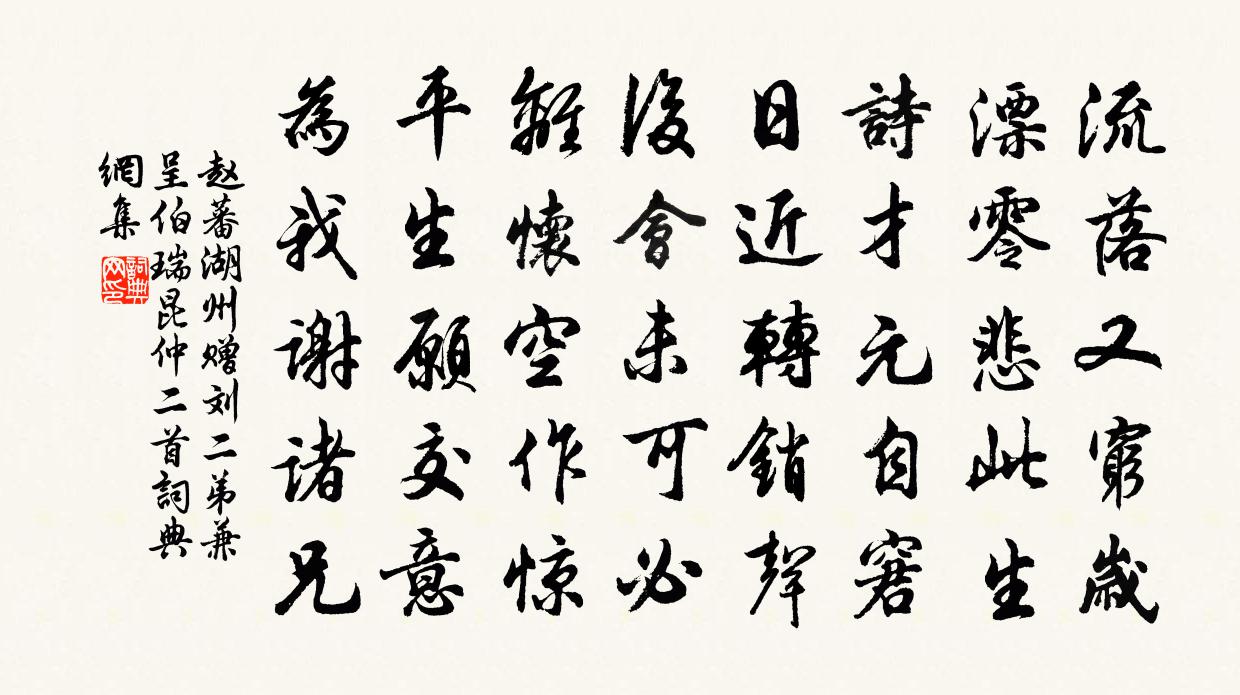 流落又窮歲
漂零悲此生
詩才元自窘
日近轉銷聲
後會未可必
離懷空作惊
平生願交意
為我謝諸兄
赵蕃湖州赠刘二弟兼
呈伯瑞昆仲二首詞典
網集
詞典網印